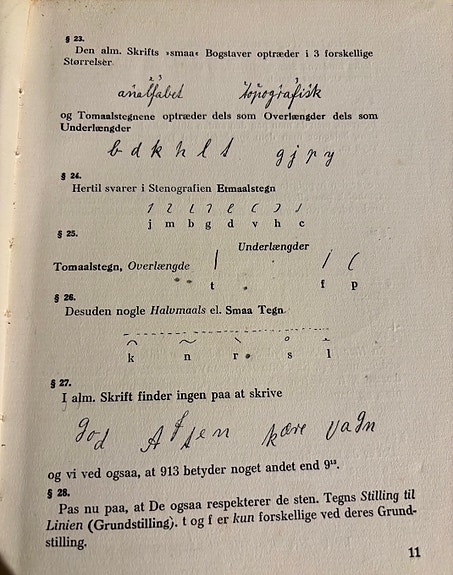 § 23.
Den alm. Skrifts »smaa« Bogstaver optræder i 3 forskellige
Størrelser
analfabet topografisk
og Tomaalstegnene optræder dels som Overlængder dels som
Underlængder
b d k h l t g j p y
§ 24.
Hertil svarer i Stenografien Etmaalstegn
j m b g d v h c
§ 25.
Underlængder
Tomaalstegn, Overlængde
t f p
§ 26.
Desuden nogle Halvmaals el. Smaa Tegn
k n r s l
§ 27.
I alm. Skrift finder ingen paa at skrive
god Aften kære Vagn
og vi ved ogsaa, at 913 betyder noget andet end 9¹³.
§ 28.
Pas nu paa, at De ogsaa respekterer de sten. Tegns Stilling til
Linien (Grundstilling). t og f er kun forskellige ved deres Grund-
stilling.
11